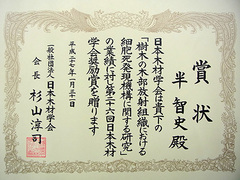 賞状
半 智史殿
日本木材学会は貴下の
「樹木の木部放射組織における
細胞死発現機構に関する研究」
の業績に対し第二十六回日本木材
学会奨励賞を贈ります
平成二七年一月三一日
一般社団法人 日本木材学会
会長 杉山淳司